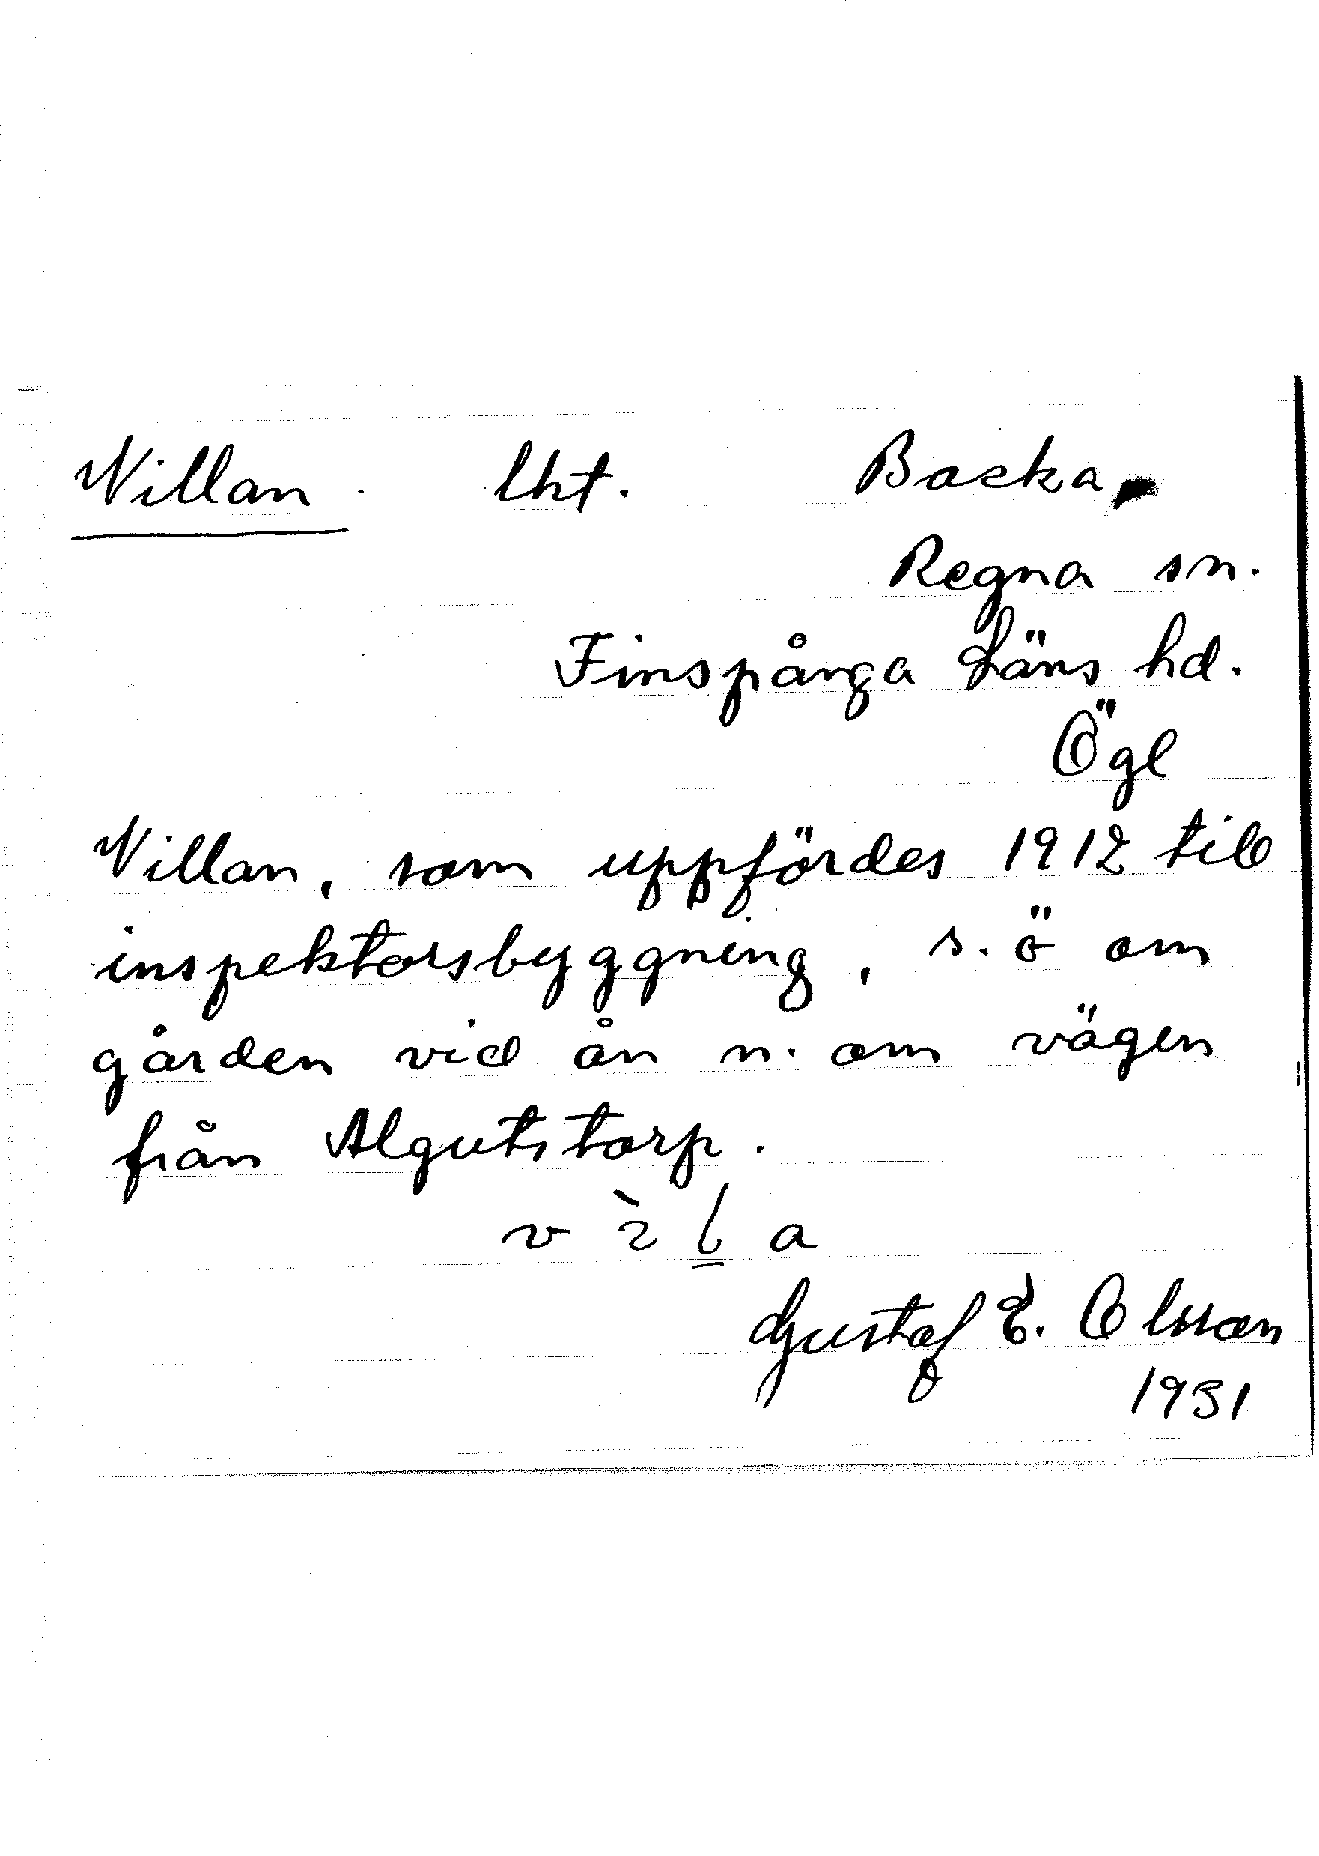 Villan. lht. Backa
Regna sn.
Finspånga Läns hd.
Ögl
Villan, som uppfördes 1912 till
inspektorsbyggning, s.ö om
gården vid ån n. om vägen
från Algutstorp.
Gustaf E. Olsson
1931